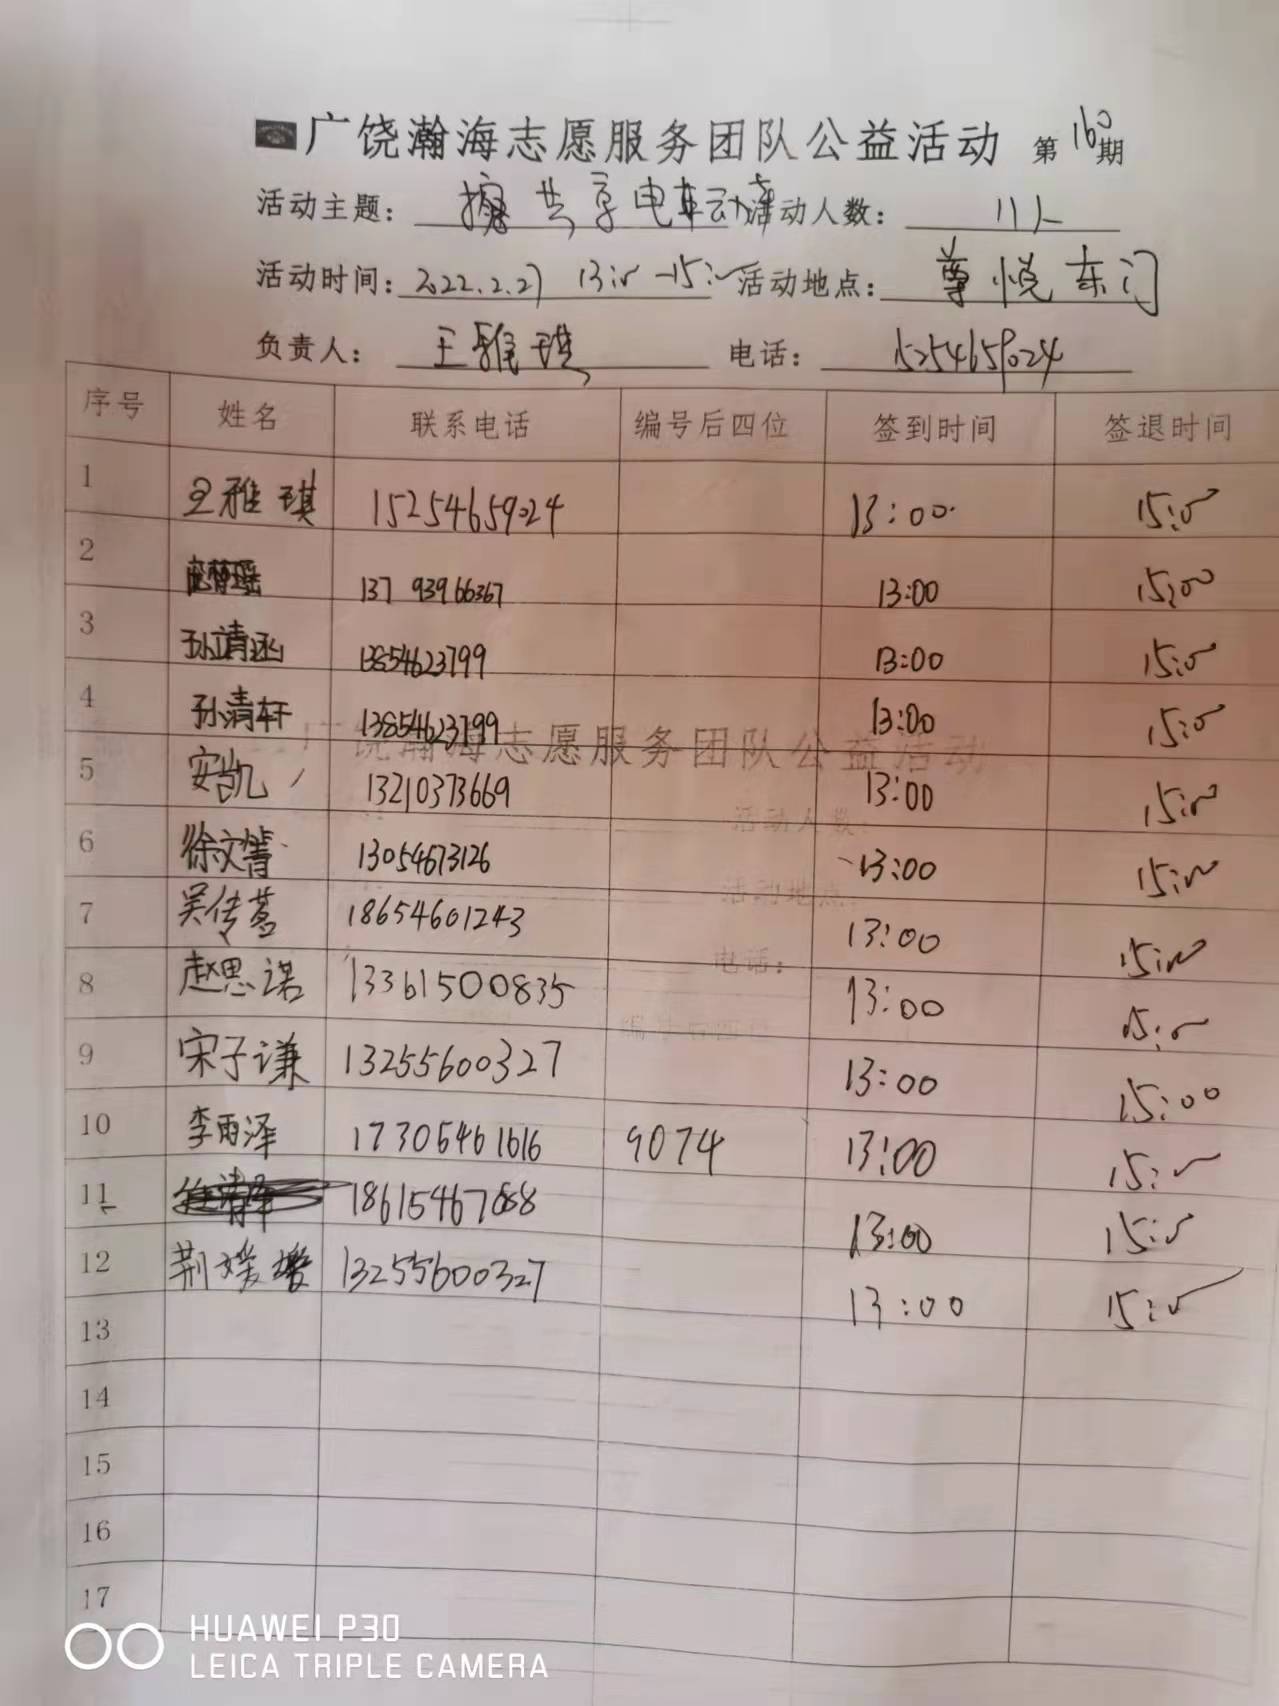 广饶瀚海志愿服务团队公益活动 第160期
活动主题： 擦共享电动车 活动人数： 11人
活动时间： 2022.2.27 13:00-15:00 活动地点： 尊悦东门
负责人： 王雅琪 电话： 15254659024
序号 姓名 联系电话 编号后四位 签到时间 签退时间
1 王雅琪 15254659024 13:00 15:00
2 13793966367 13:00 15:00
3 孙靖涵 13854623799 13:00 15:00
4 孙清轩 13854623799 13:00 15:00
广饶瀚海志愿服务团队公益活动
5 安凯 13210373669 13:00 15:00
活动人数：
6 徐文箐 13054673126 13:00 15:00
活动地点：
7 吴传茗 18654601243 13:00 15:00
电话：
8 赵思诺 13361500835 13:00 15:00
编号后四位
9 宋子谦 13255600327 13:00 15:00
10 李雨泽 17305461616 9074 13:00 15:00
11 13:00 15:00
12 13255600327 13:00 15:00
13
14
15
16
17
HUAWEI P30
LEICA TRIPLE CAMERA